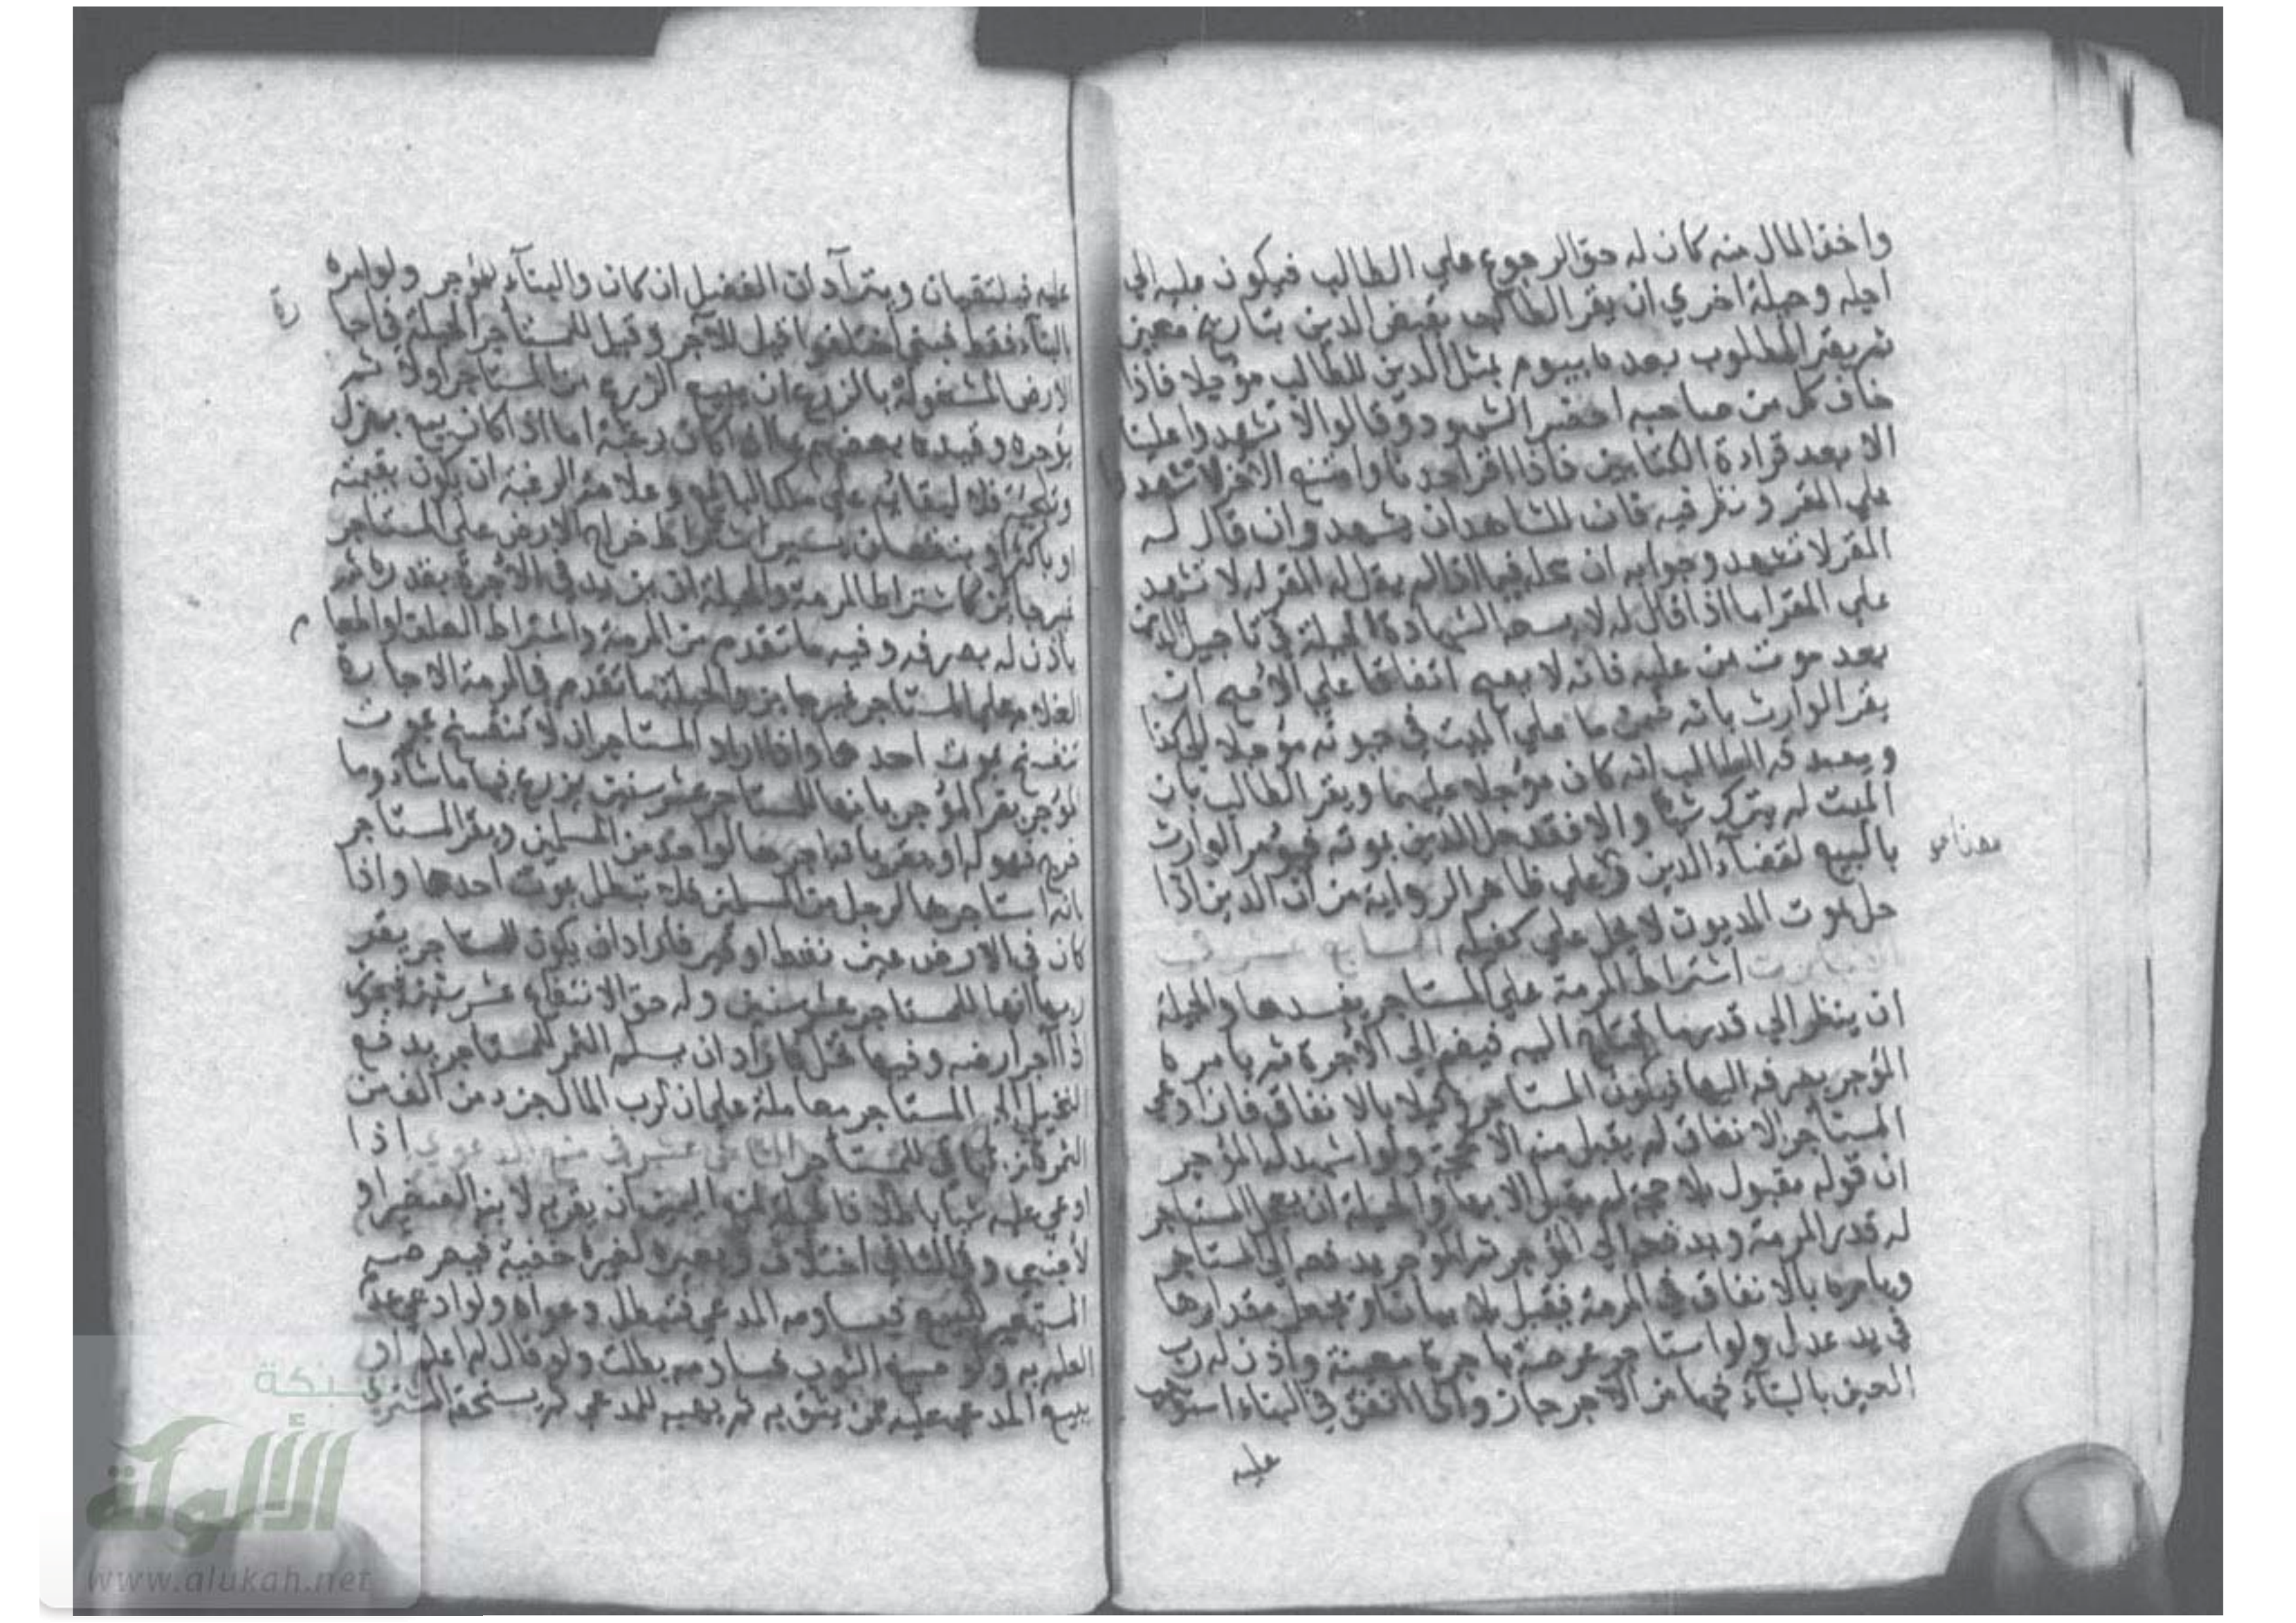 واخذ المال منه كان له حق الرجوع علي الطالب فيكون عليه الي
اجله وحيلة اخري ان يقر الطالب بقبض الدين بتاريخ معين
ثم يقر المطلوب بعده بيوم بمثل الدين للطالب مؤجلا فاذا
خاف كل من صاحبه احضر الشهود وقالوا لا تشهدوا علينا
الا بعد قرادة الكتابين فاذا اقر احدنا وامتنع الاخر لا تشهد
علي المقر و نظر فيه فان للشاهد ان يشهد وان قال له
المقر لا تشهد وجوابه ان محله فيما اذا لم يقل له المقر له لا تشهد
علي المقر اما اذا قال له لا يسعه الشهادة الحيلة في تاجيل الدين
بعد موت من عليه فانه لا يصح اتفاقا علي الاصح ان
يقر الوارث بانه ضمن ما علي الميت في حيوته مؤجلا الي كذا
و يصدقه الطالب انه كان مؤجلا عليهما ويقر الطالب بان
الميت لم يترك شيأ والا فقد حل الدين بموته فيؤمر الوارث
بالبيع لقضآء الدين وعلي ظاهر الرواية من ان الدين اذا
حل بموت المديون لا يحل علي كفيله السابع عشر في
الاجارات اشتراط المرمة علي المستاجر يفسدها والحيلة
ان ينظر الي قدرها فيضم اليه فيضم الي الاجرة ثم يامره
المؤجر بصرفه اليها فيكون المستاجر وكيلا بالانفاق فان ادعي
المستأجر الانفاق لم يقبل منه الا بحجة ولو اشهد له المؤجر
ان قوله مقبول بلا حجة لم يقبل الا بها والحيلة ان يعجل المستاجر
له قدر المرمة ويدفعه الي المؤجر ثم المؤجر يدفعه الي المستاجر
ويامره بالانفاق في المرمة فيقبل بلا بيان او يجعل مقدارها
في يد عدل ولو استاجر عرصة باجرة معينة واذن له رب
العين بالبنآء فيها من الاجر جاز واذا انفق في البناء استوجب
عليه
عليه فيلتقيان ويترآدان الفضل ان كان والبنآء للمؤجر ولو امره
البنآء فقط فبني اختلفوا قيل للآجر وقيل للمستأجر الحيلة في اجا
رة
لارض المشغولة بالزرع ان يبيع الزرع من المستاجر اولا ثم
يؤجره وقيده بعضهم بما اذا كان رغبة اما اذا كان بيع هزل
وتلجئة فلا لبقائه علي ملك البائع و علامة الرغبة ان يكون بقيمته
او باكثر او بنقصان يسير اشتراط خراج الارض علي المستاجر
غير جائز كاشتراط المرمة والحيلة ان يزيد في الاجرة بقدره ثم
ياذن له بصرفه وفيه ما تقدم من المرمة واشتراط العلف او طعا
م
الغلام علي المستاجر غير جائز والحيلة ما تقدم في المرمة الاجارة
تنفسخ بموت احدهما واذا اراد المستاجر ان لا تنفسخ بموت
لمؤجر يقر المؤجر بانها للمستاجر عشر سنين يزرع فيها ما شاء وما
خرج فهو له او يقر بانه اجرها لواحد من المسلمين ويقر المستاجر
بانه استاجرها لرجل من المسلمين فلا تبطل بموت احدهما واذا
كان في الارض عين نفط او قير فاراد ان يكون للمستاجر يقر
ربها انها للمستاجر عشر سنين وله حق الانتفاع عشر سنين فيجوز
ذا آجر ارضه وفيها نخل فاراد ان يسلم الثمر للمستاجر يدفع
لنخيل الي المستاجر معاملة علي ان لرب المال جزء من الف من
الثمر والباقي للمستاجر الثامن عشر في منع الدعوي اذا
ادعي عليه شيا باطلا فالحيلة لمنع اليمين ان يقر به لابنه الصغير او
لاجنبي وفي الثاني اختلاف او يعيره لغيره خفية فيعرضه
المستعير للبيع فيساومه المدعي فتبطل دعواه ولو ادعي عدم
العلم به ولو صبغ الثوب فساومه بطلت ولو قال لم اعلم او
يبيع المدعي عليه ممن يثق به ثم يهبه للمدعي ثم يستحقه المشتري
شبكة
الألوكة
www.alukah.net